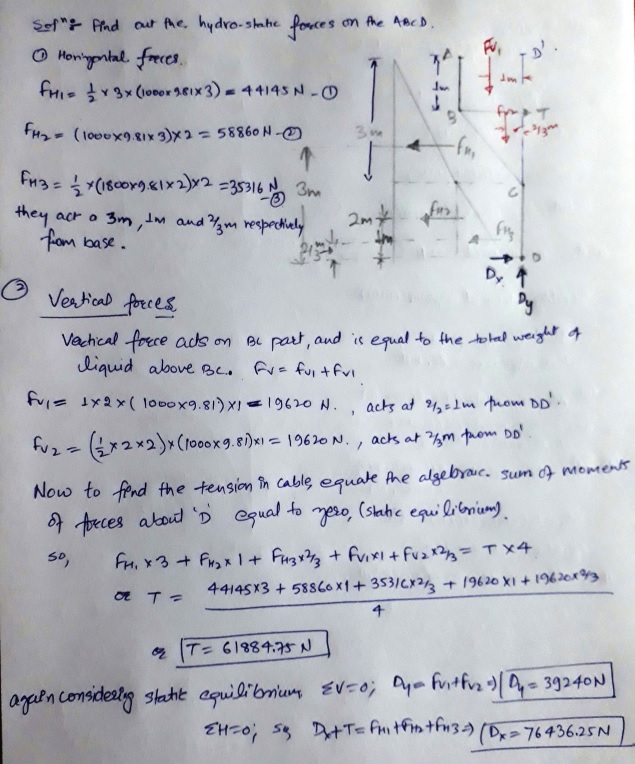 Solⁿ:- Find out the hydro-static forces on the ABCD.
① Horizontal forces.
FH1 = ½ × 3 × (1000×9.81×3) = 44145 N - ①
FH2 = (1000×9.81×3)×2 = 58860 N - ②
FH3 = ½ ×(1800×9.81×2)×2 = 35316 N - ③
they act a 3m, 1m and ⅔m respectively
from base.
A
Fv1
D'
1m
1m
B
Fv2
T
2/3m
3m
FH1
3m
C
2m
FH2
1m
FH3
2/3m
D
Dx
Dy
② Vertical forces
Vertical force acts on BC part, and is equal to the total weight of
liquid above BC. Fv = fv1 + fv1
fv1 = 1×2×(1000×9.81)×1 = 19620 N. , acts at 2/2=1m from DD'.
fv2 = (½×2×2)×(1000×9.81)×1 = 19620 N. , acts at 2/3m from DD'
Now to find the tension in cable, equate the algebraic sum of moments
of forces about 'D' equal to zero, (static equilibrium).
so, FH1 ×3 + FH2 ×1 + FH3×2/3 + fv1×1 + fv2×2/3 = T×4
or T = 44145×3 + 58860×1 + 35316×2/3 + 19620×1 + 19620×2/3
4
or T = 61884.75 N
again considering static equilibrium ΣV=0; Dy = fv1+fv2 ⇒ Dy = 39240N
ΣH=0; so Dx+T = FH1+FH2+FH3 ⇒ Dx = 76436.25N